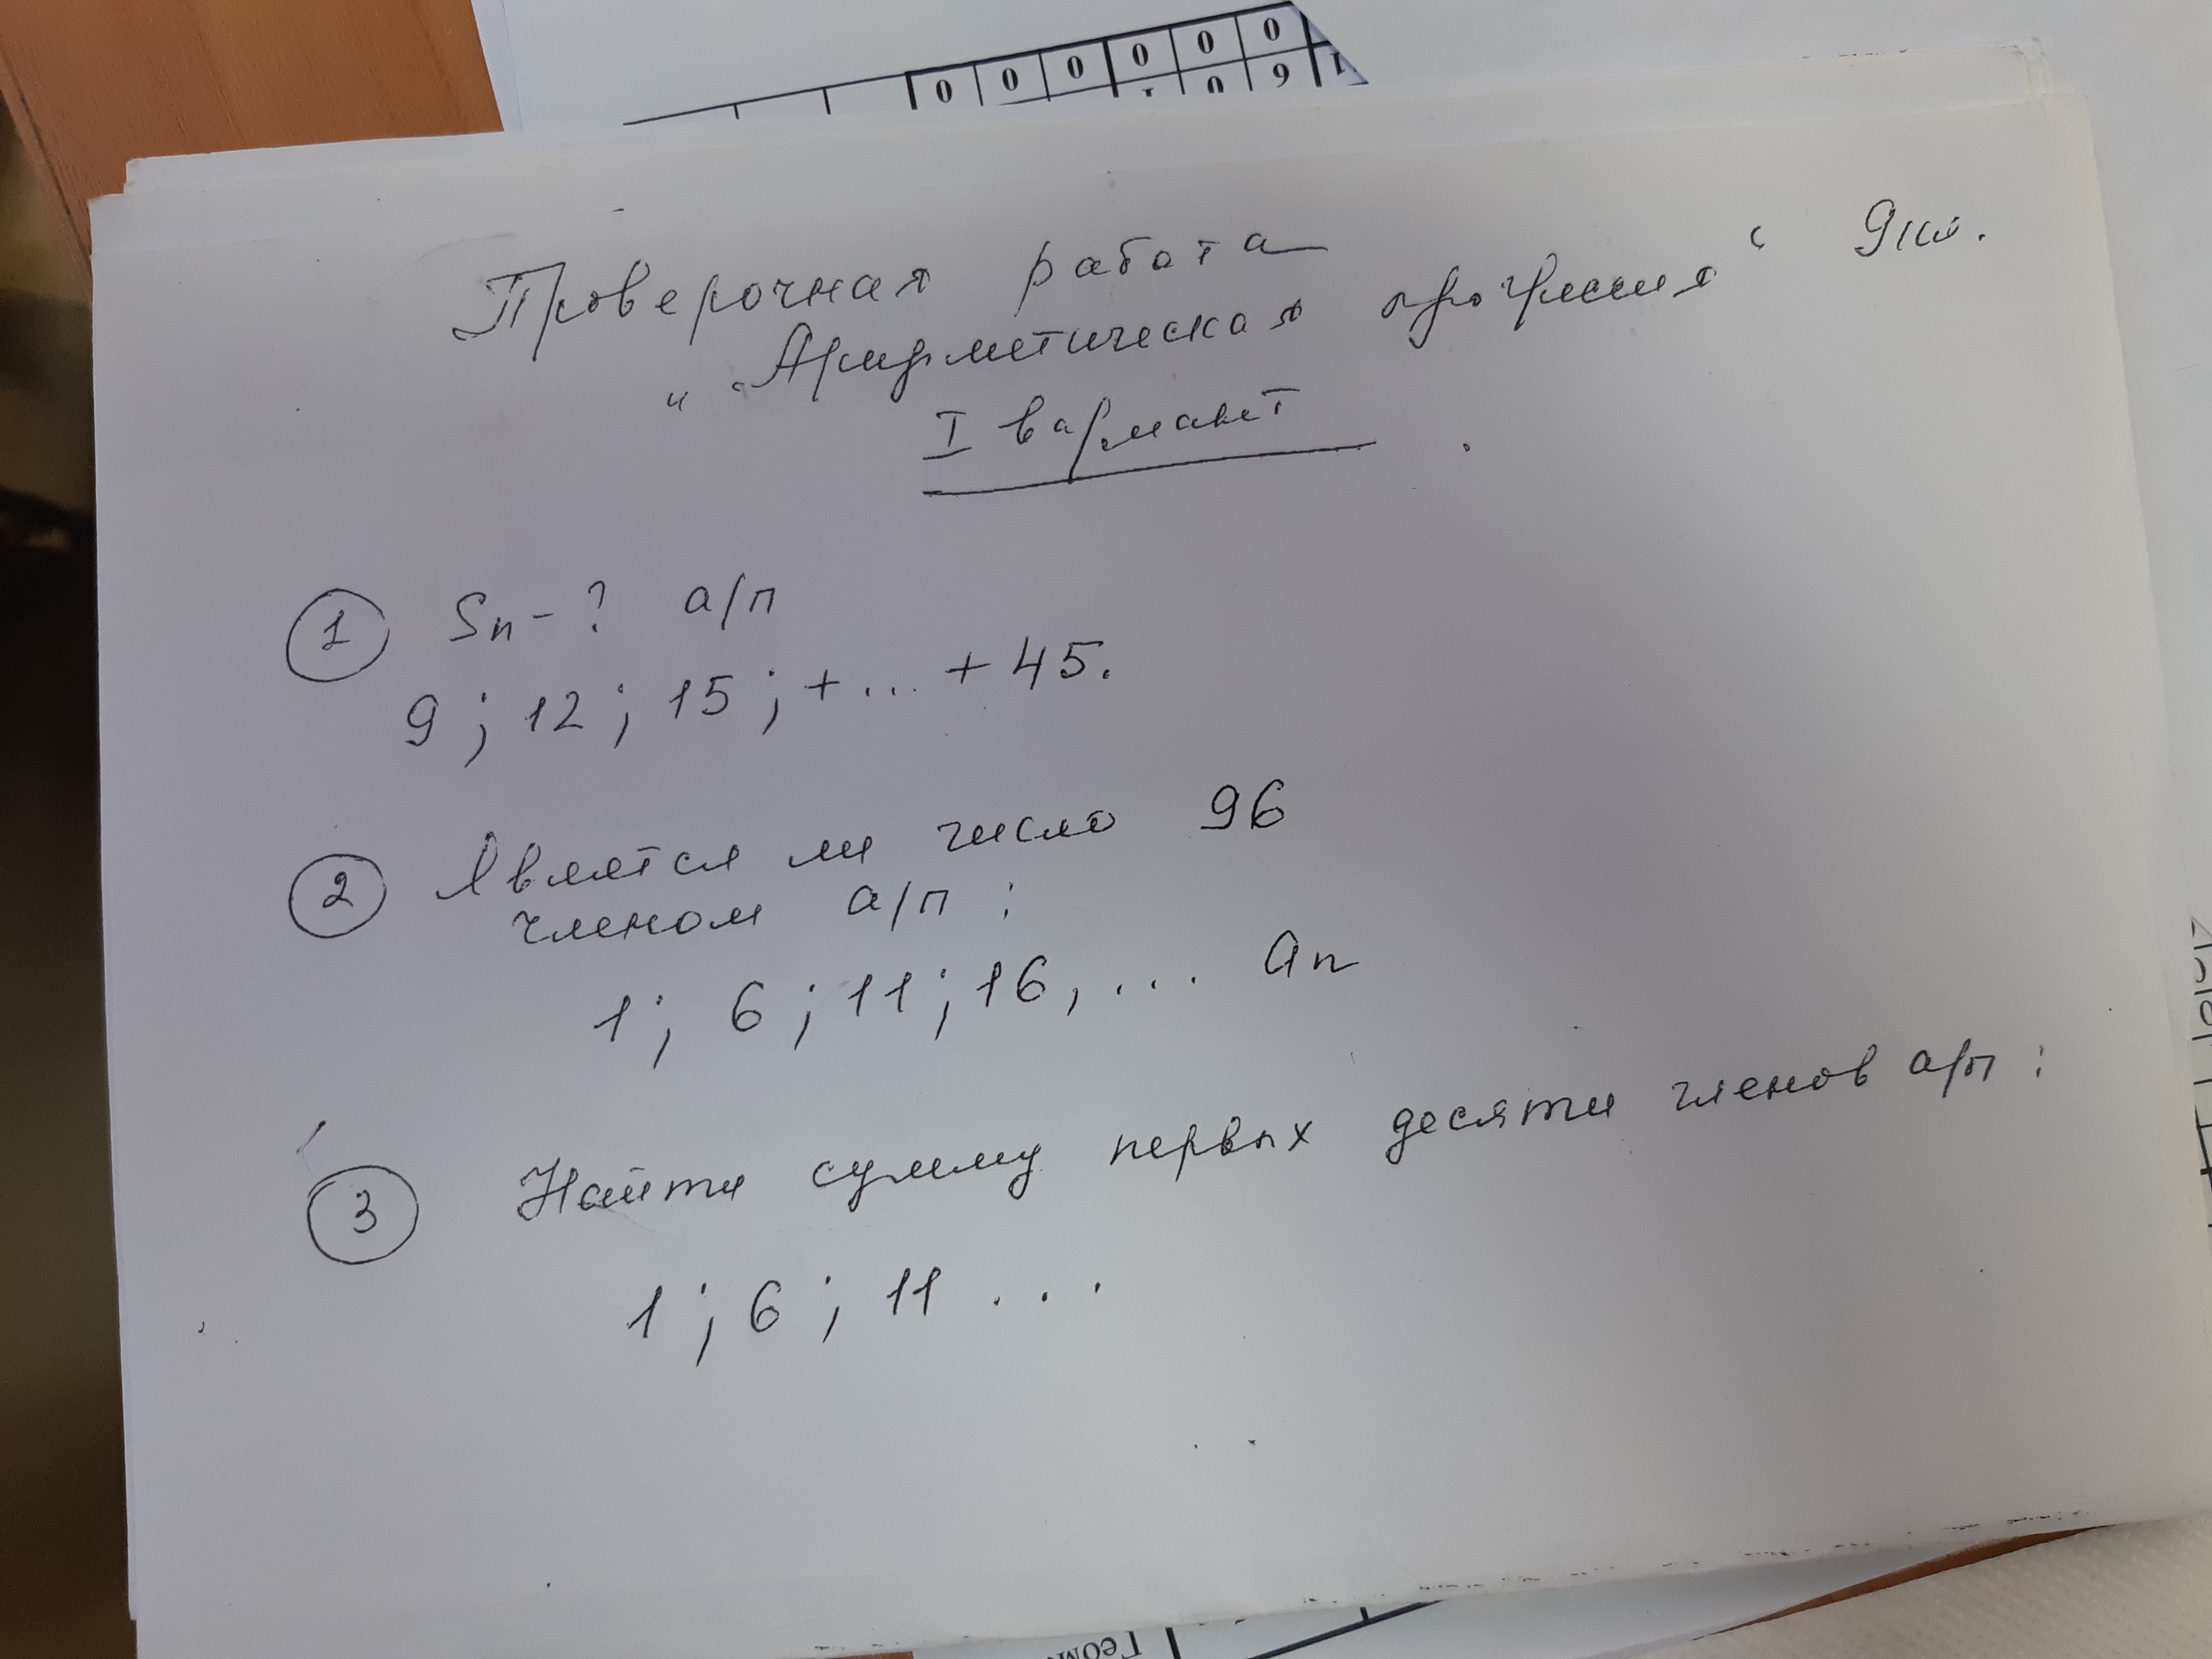 0 0 0 0 0 0
0 9
Проверочная работа
„Арифметическая прогрессия“ 9 кл.
I вариант
1 Sn - ? а/п
9 ; 12 ; 15 ; + ... + 45.
2 Является ли число 96
членом а/п :
1 ; 6 ; 11 ; 16 , ... an
3 Найти сумму первых десяти членов а/п :
1 ; 6 ; 11 ...